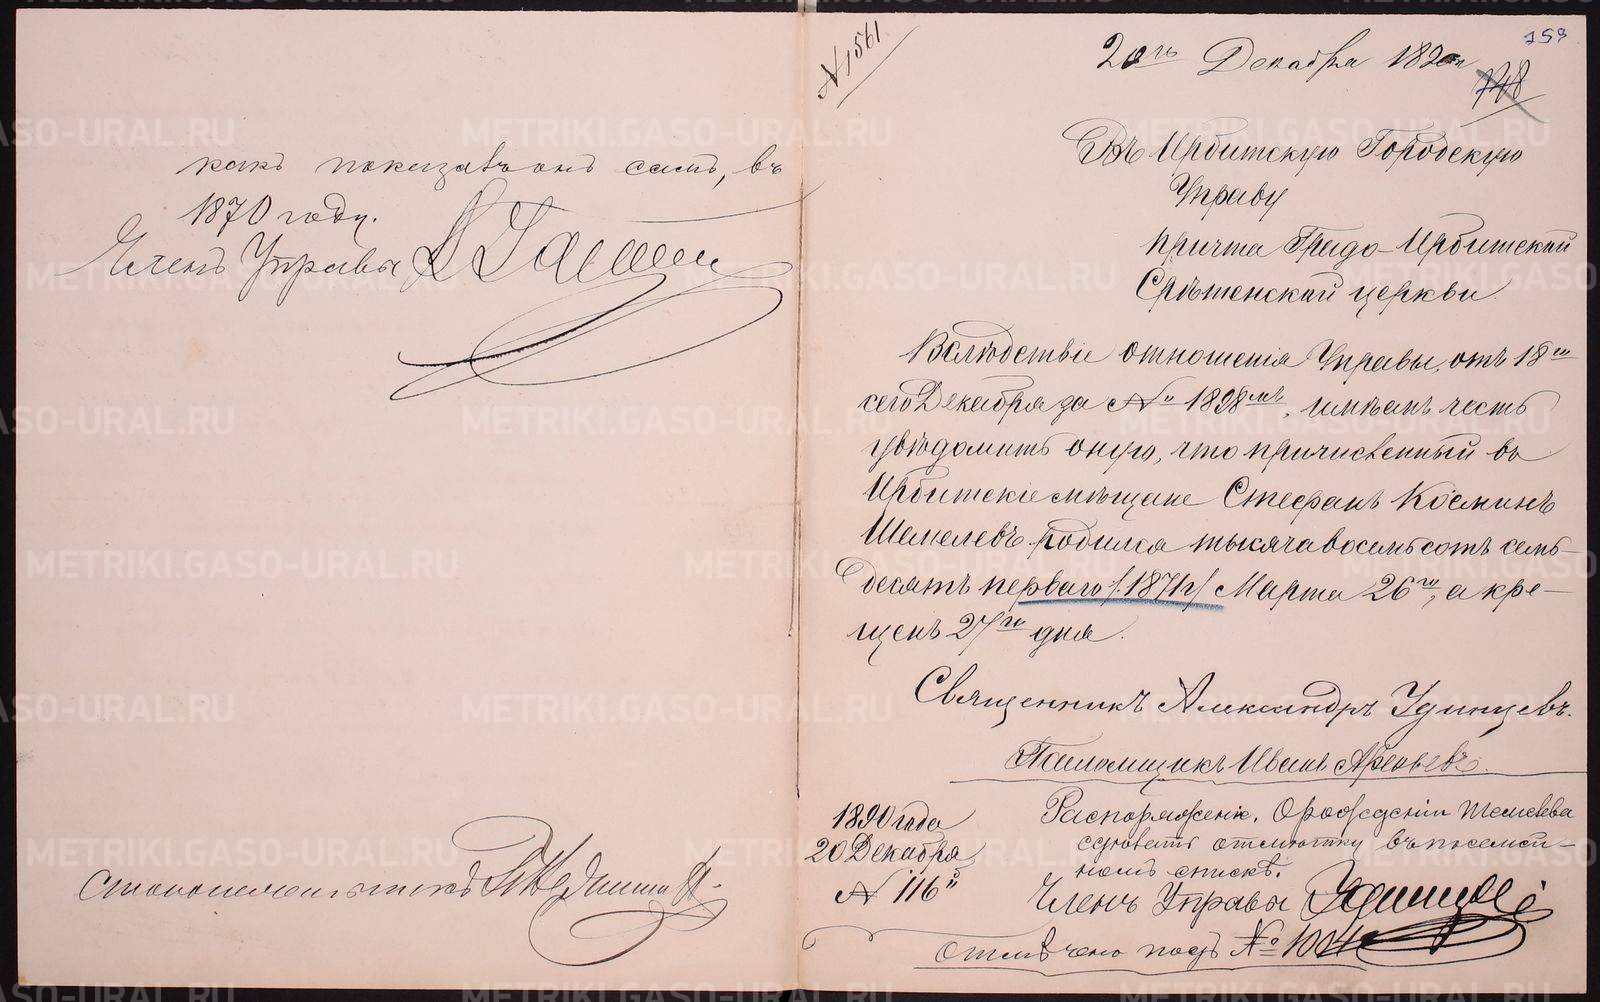 какъ показавъ онъ самъ, въ
1870 году.
Членъ Управы
Столоначальникъ
№ 1561
759
20го Декабря 1890 г.
748
Въ Ирбитскую Городскую
Управу
Причта Градо-Ирбитской
Срѣтенской церкви
Вслѣдствіе отношенія Управы, отъ 18го
сего Декабря за № 1898мъ, имѣемъ честь
увѣдомить оную, что причисленный въ
Ирбитскіе мѣщане Стефанъ Косминъ
Шемелевъ родился тысяча восемьсотъ семь-
десятъ перваго /:1871 г/ Марта 26го, а кре-
щенъ 27го дня.
Священникъ Александръ Удинцевъ.
Псаломщикъ Иванъ Арефьевъ.
1890 года
20 Декабря
№ 116й
Распоряженіе. О рожденіи Шемелева
сдѣлать отмѣтку въ посемей-
номъ спискѣ.
Членъ Управы Удинцевъ
Отмѣчено подъ № 104
METRIKI.GASO-URAL.RU